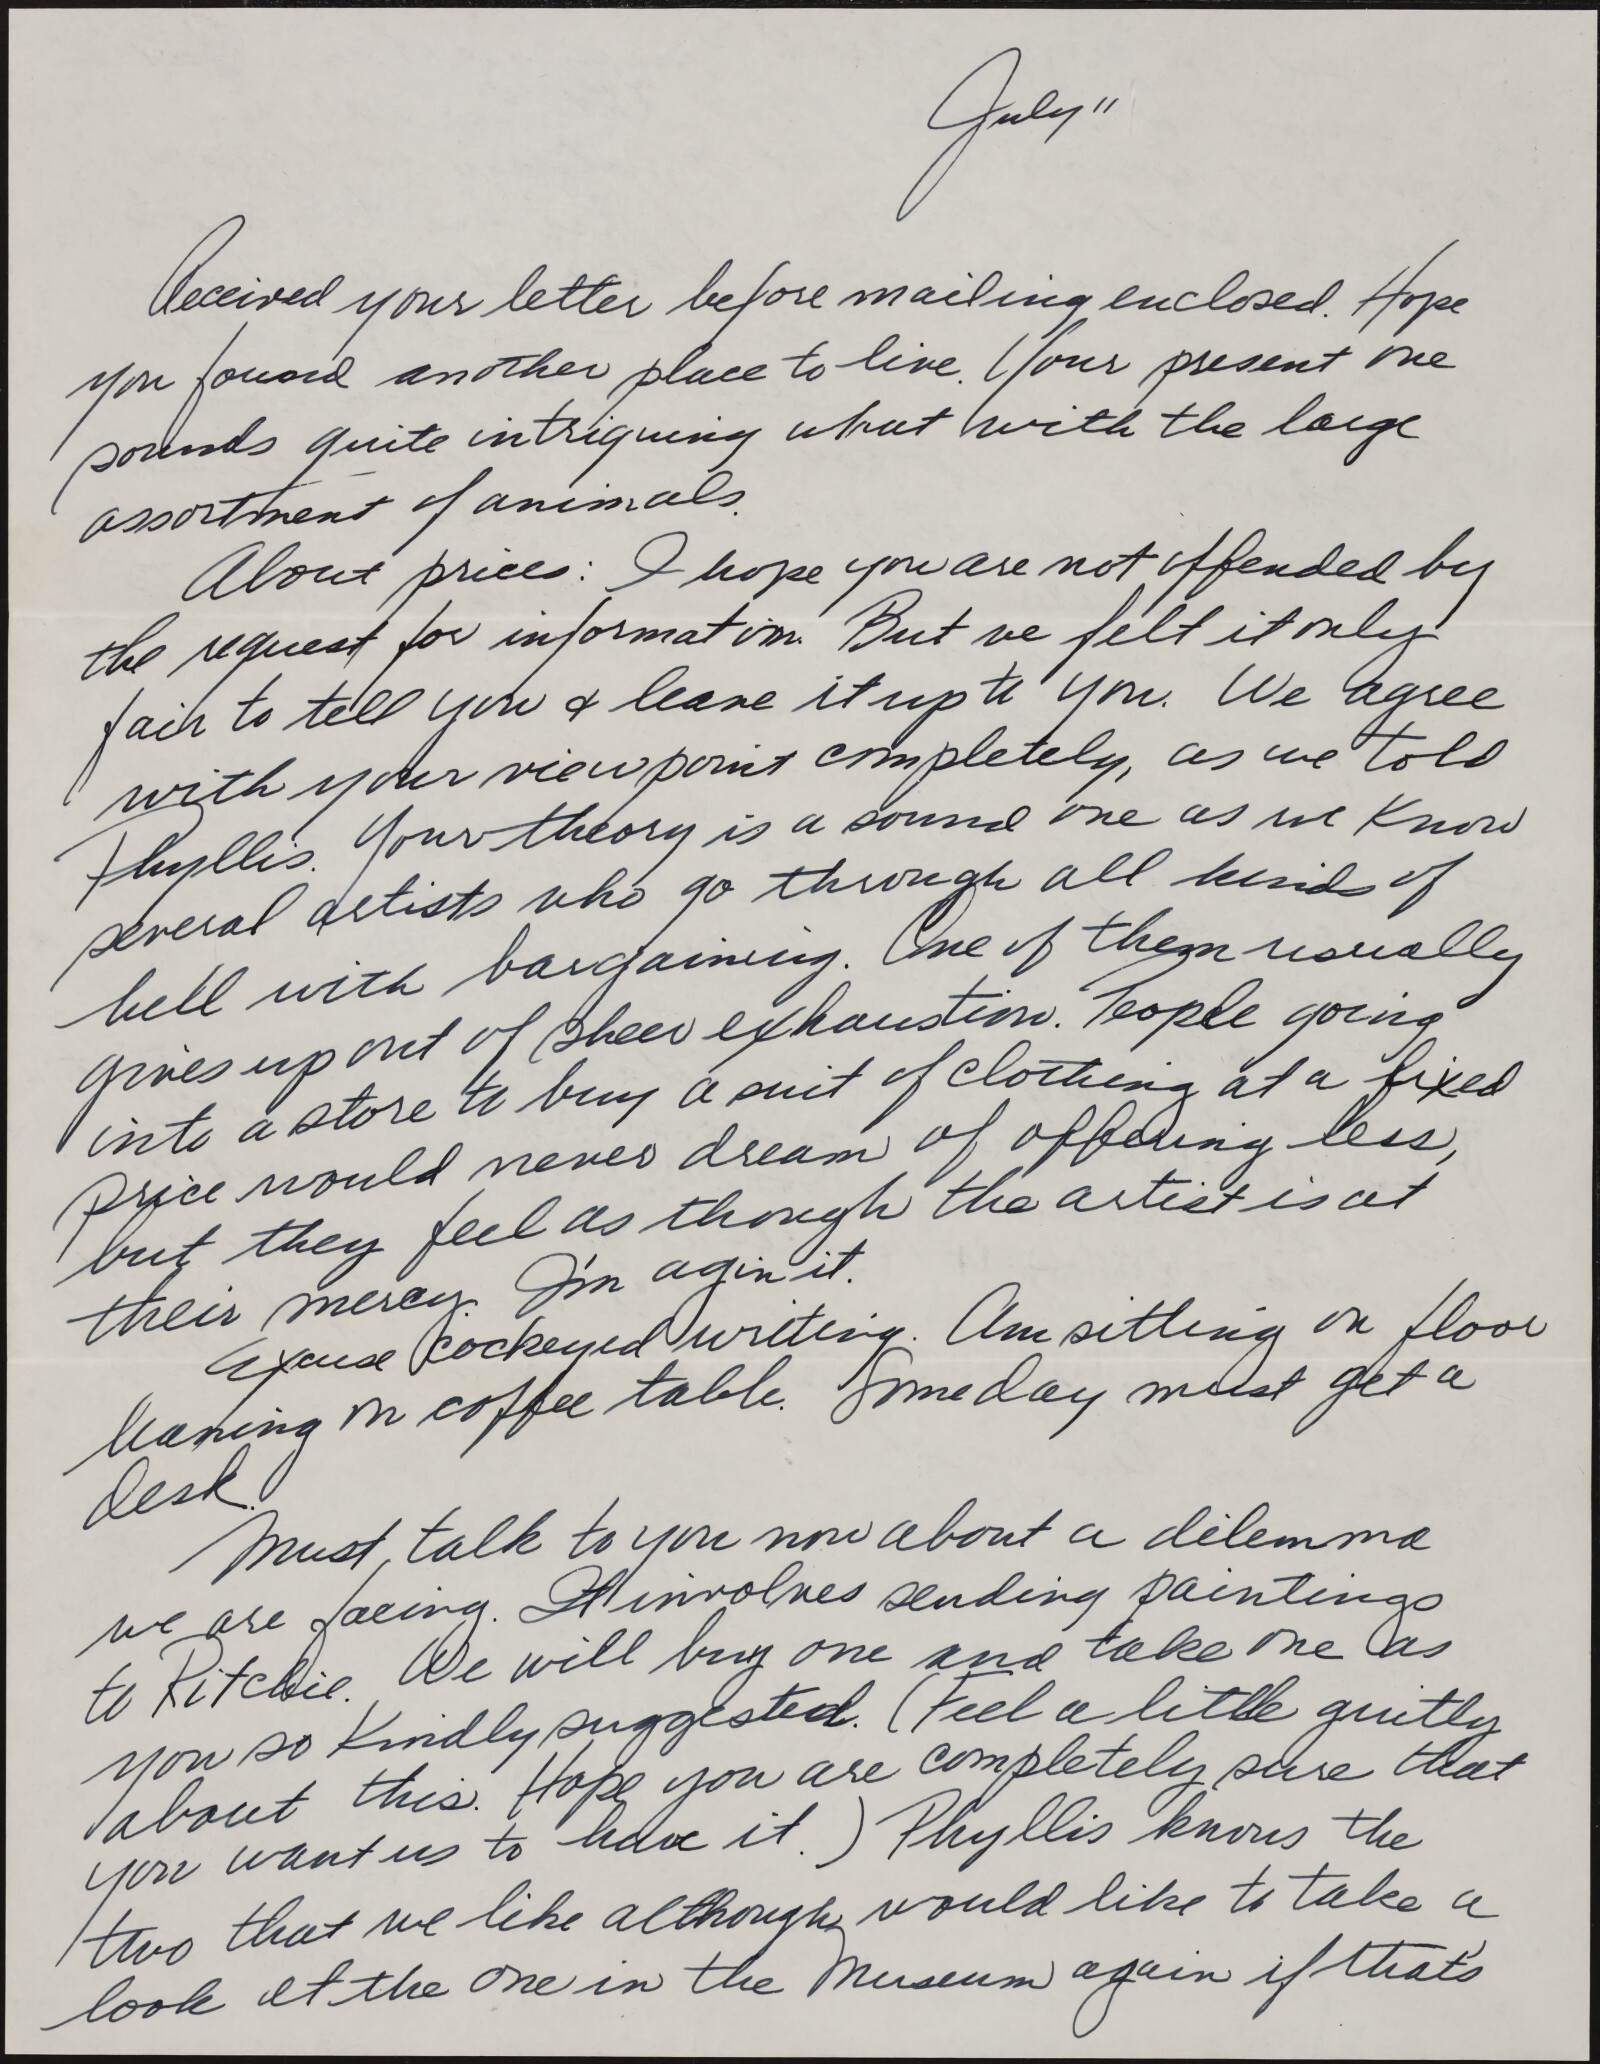 July 11
Received your letter before mailing enclosed. Hope
you found another place to live. Your present one
sounds quite intriguing what with the large
assortment of animals.
About prices: I hope you are not offended by
the request for information. But we felt it only
fair to tell you & leave it up to you. We agree
with your viewpoint completely, as we told
Phyllis. Your theory is a sound one as we know
several artists who go through all kinds of
hell with bargaining. One of them usually
gives up out of sheer exhaustion. People going
into a store to buy a suit of clothing at a fixed
price would never dream of offering less,
but they feel as though the artist is at
their mercy. I'm agin it.
Excuse cockeyed writing. Am sitting on floor
leaning on coffee table. Someday must get a
desk.
Must talk to you now about a dilemma
we are facing. It involves sending paintings
to Ritchie. We will buy one and take one as
you so kindly suggested. (Feel a little guilty
about this. Hope you are completely sure that
you want us to have it.) Phyllis knows the
two that we like although would like to take a
look at the one in the Museum again if that's